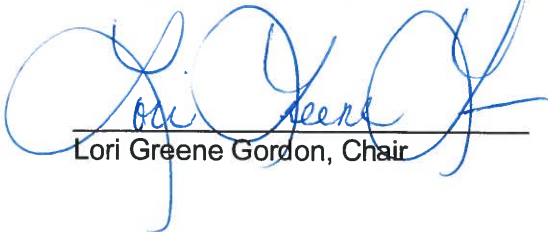 Lori Greene G
Lori Greene Gordon, Chair